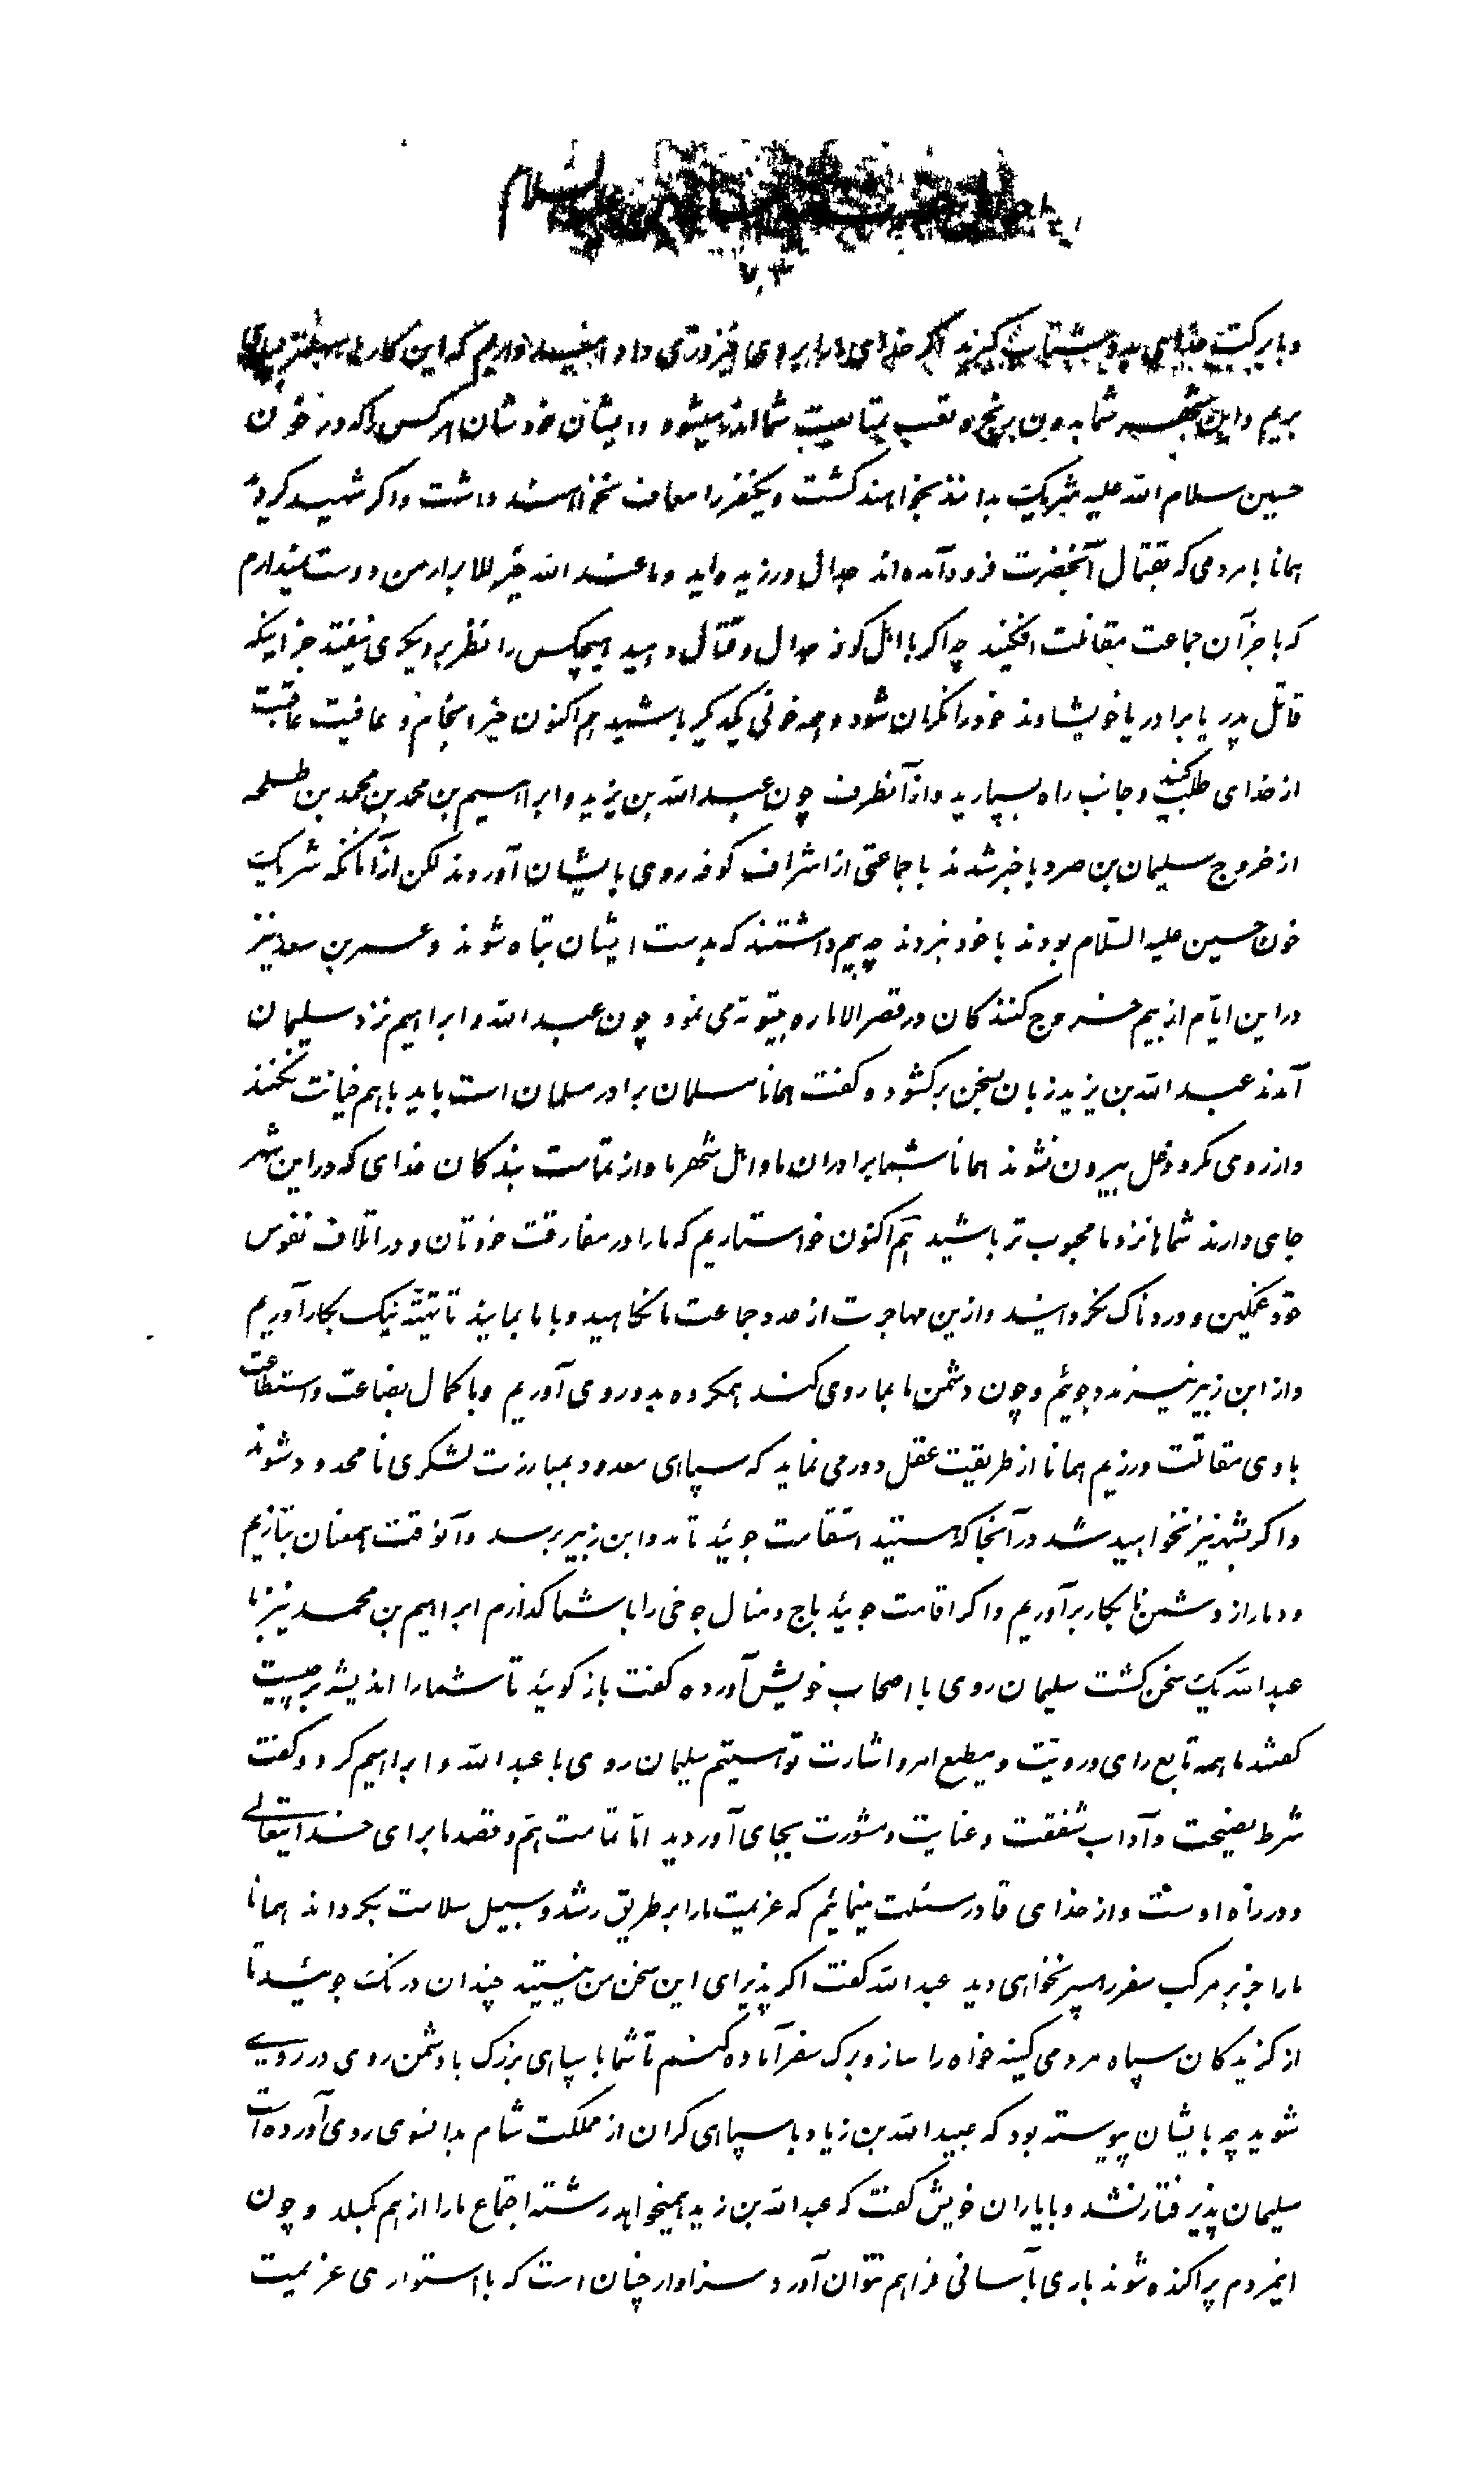 السلام
۷۰۳
و با برکت خدای بدو شتاب گیرند اگر خدای ما را بروی فیروزی داد امیدواریم که این کار
بریم و این شهر شما بدون رنج و تعب بمتابعت شما اندر میشود و ایشان خودشان هر کس را که در خون
حسین سلام الله علیه شریک بدانند بخواهند کشت و یکنفر را معاف نخواهند داشت و اگر شهید کردید
همانا با مردمی که بقتال آنحضرت فرود آمده‌اند جدال ورزیده‌اید و ما عند الله خیر للابرار من دوست میدارم
که با جز آن جماعت بمقاتلت افکنید چه اگر با اهل کوفه جدال و قتال دهید هیچکس را نظر بدیگری نیفتد جز اینکه
قاتل پدر یا برادر یا خویشاوند خود را نگران شود و همه خونی یکدیگر باشید هم اکنون خیر انجام و عافیت عاقبت
از خدای طلب کنید و جانب راه بسپارید و از آنطرف چون عبد الله بن یزید و ابراهیم بن محمد بن محمد بن طلحه
از خروج سلیمان بن صرد با خبر شدند با جماعتی از اشراف کوفه روی بایشان آوردند لکن از آنانکه شریک
خون حسین علیه السلام بودند با خود نبردند چه بیم داشتند که بدست ایشان تباه شوند و عمر بن سعد نیز
در این ایام از بیم خروج کنندگان در قصر الاماره بیتوته می نمود چون عبد الله و ابراهیم نزد سلیمان
آمدند عبد الله بن یزید زبان بسخن برکشود و گفت همانا مسلمان برادر مسلمان است باید با هم خیانت نکنند
و از روی مکر و دغل بیرون نشوند همانا شما برادران ما و اهل شهر ما و از تمامت بندگان خدای که در این شهر
جای دارند شماها نزد ما محبوب تر باشید هم اکنون خواستاریم که ما را در مفارقت خودتان و در اتلاف نفوس
خود غمگین و دردناک نگردانید و ازین مهاجرت از عدد جماعت ما نکاهید و با ما بمانید تا تهیه نیک بکار آوریم
و از ابن زبیر نیز مدد جوئیم و چون دشمن ما بما روی کند همگروه بدو روی آوریم و با کمال بضاعت و استطاعت
با وی مقاتلت ورزیم همانا از طریقت عقل دور می نماید که سپاهی معدود بمبارزت لشکری نامحدود شوند
و اگر بشهر نیز نخواهید شد در آنجا که هستید استقامت جوئید تا مدد ابن زبیر برسد و آنوقت همعنان بتازیم
و دمار از دشمن نابکار برآوریم و اگر اقامت جوئید باج و منال جوخی را با شما گذارم ابراهیم بن محمد نیز با
عبد الله یک سخن گشت سلیمان روی با اصحاب خویش آورده گفت باز گوئید تا شما را اندیشه بر چیست
گفتند ما همه تابع رای و رویت و مطیع امر و اشارت تو هستیم سلیمان روی با عبد الله و ابراهیم کرد و گفت
شرط نصیحت و آداب شفقت و عنایت و مشورت بجای آوردید اما تمامت هم و قصد ما برای خدایتعالی
و در راه اوست و از خدای قادر مسئلت مینمائیم که عزیمت ما را بر طریق رشد و سبیل سلامت بگرداند همانا
ما را جز بر مرکب سفر رهسپر نخواهی دید عبد الله گفت اگر پذیرای این سخن من نیستید چندان درنگ جوئید تا
از گزیدگان سپاه مردمی کینه خواه را ساز و برگ سفر آماده کنم تا شما با سپاهی بزرگ با دشمن روی در روی
شوید چه بایشان پیوسته بود که عبید الله بن زیاد با سپاهی گران از مملکت شام بدانسوی روی آورده است
سلیمان پذیرفتار نشد و با یاران خویش گفت که عبد الله بن زید همیخواهد رشته اجتماع ما را از هم بگسلد و چون
اینمردم پراکنده شوند باری بآسانی فراهم نتوان آورد و سزاوار چنان است که با استواری عزیمت